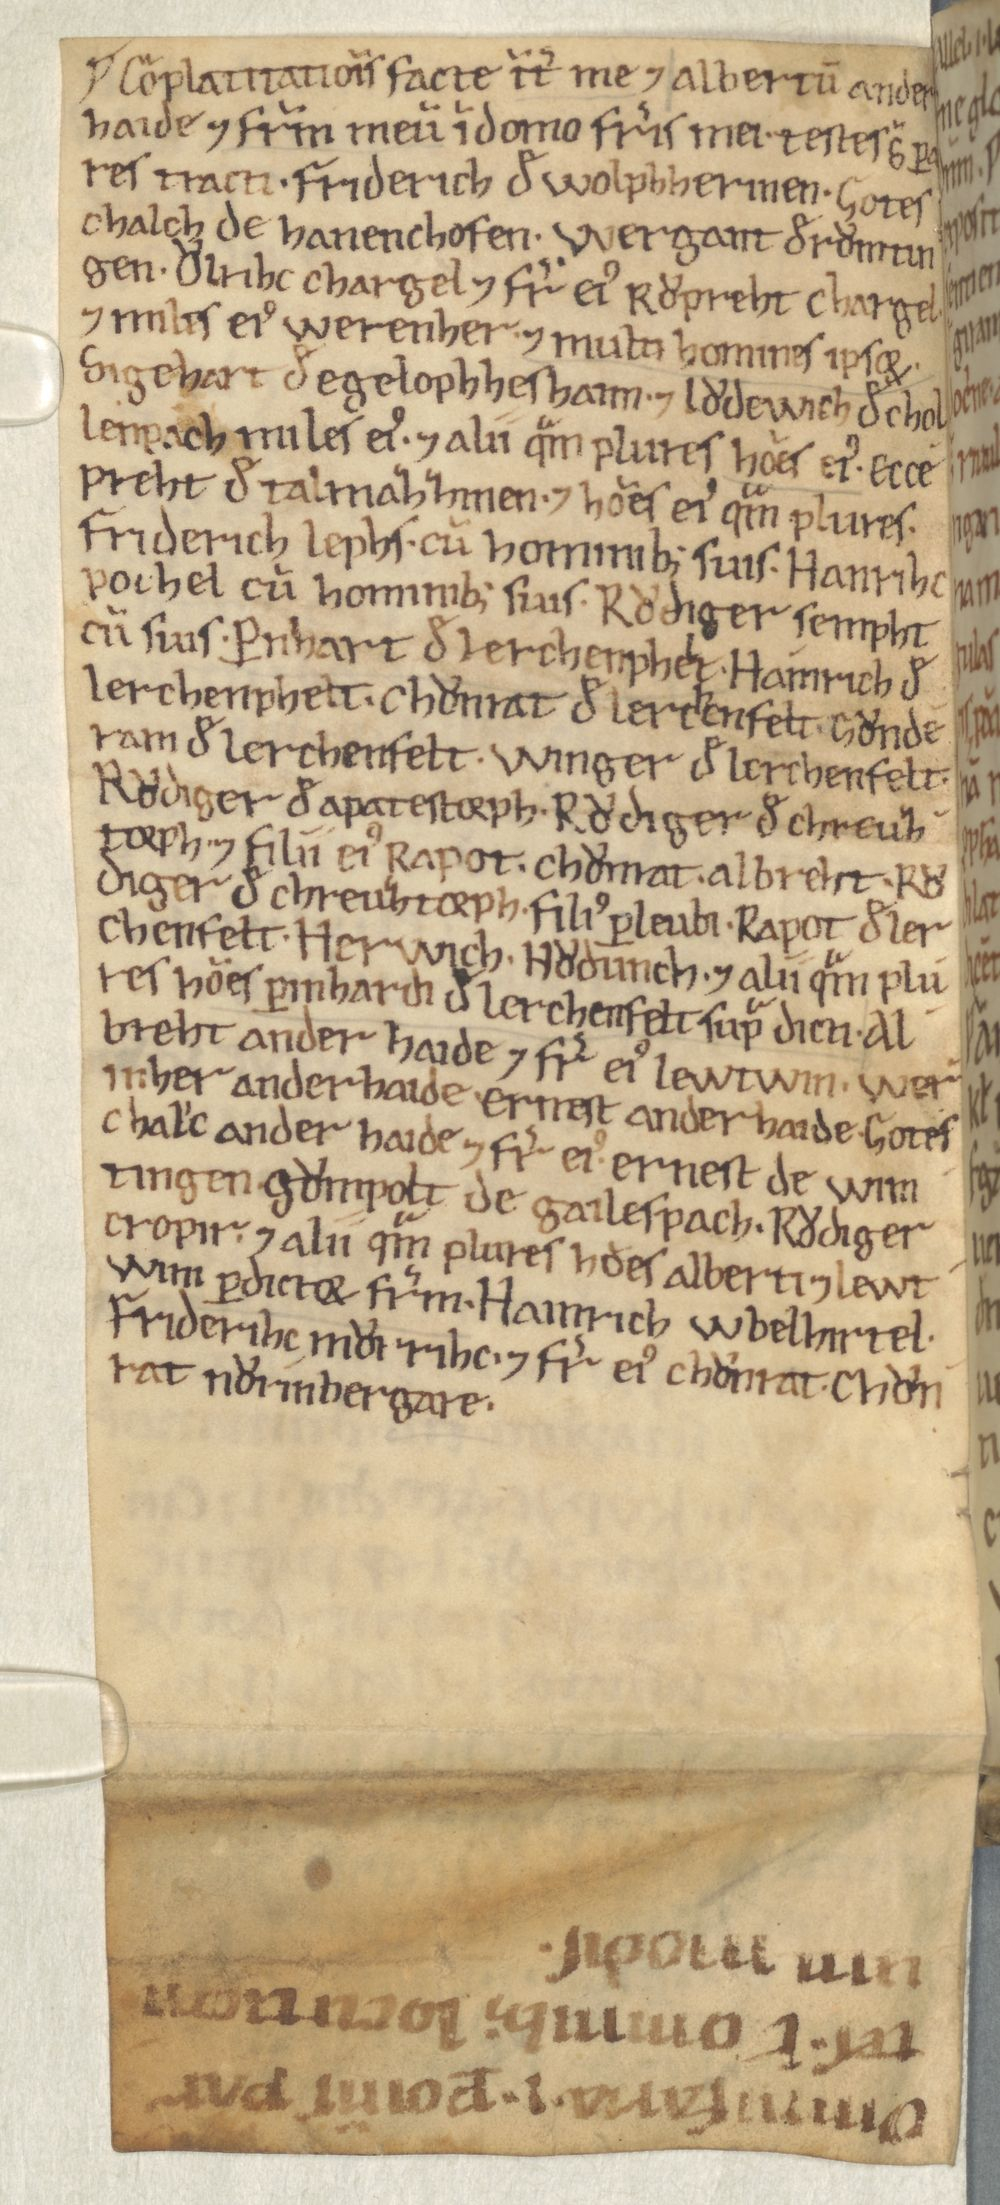 ꝩ Cōplatitationis facte īt̄ me ⁊ albertū ander
haide ⁊ fr̄m meū ī domo fr̄is mei. testes g̊ pa
res tracti. Friderich đ wolphhermen. Gotes
chalch de hanenchofen. Wergant đ rovmtin
gen. Ovlrihc chargel ⁊ fr̄ eiꝰ Rovpreht chargel.
⁊ miles eiꝰ werenher. ⁊ multi homines ipsoꝝ.
Sigehart đ egelophheshaim. ⁊ lovdewich đ chol
lenpach miles eiꝰ. ⁊ alii qᵃm plures hōes eiꝰ. Ecce
preht đ talmahhinen. ⁊ hōes eiꝰ qᵃm plures.
Friderich lephs. cū hominibꝫ suis. Hanrihc
pochel cū hominibꝫ suis. Rovdiger sempht
cū suis. Pᵉnhart đ lerchenphelt. Hainrich đ
lerchenphelt. Chovnrat đ lerchenfelt. Govnde
ram đ lerchenfelt. Winger đ lerchenfelt.
Rovdiger đ apatestorph. Rovdiger đ chreuh
torph. ⁊ filii eiꝰ Rapot. chovnrat. albreht. Rov
diger đ chreuhtorph. filiꝰ ꝑleubi. Rapot đ ler
chenfelt. Herwich. Hovdunch. ⁊ alii qᵃm plu
res hōes ꝑinhardi đ lerchenfelt supᵃ dicti. Al
breht ander haide ⁊ fr̄ eiꝰ lewtwin. Wer
inher anderhaide ernest anderhaide. Gotes
chalc ander haide ⁊ fr̄ eiꝰ. ernest de wim
tingen. govmpolt de gailespach. Rovdiger
cropir. ⁊ alii qᵃm plures hoes alberti ⁊ lewt
wini ꝑdictoꝝ fr̄m. Hainrich wbelhirtel.
Friderihc movrrihc. ⁊ fr̄ eiꝰ chovnrat. Chovn
rat novrinbergare.
Omnifaria .i. pomi͞s par
tes. ł omnibꝫ locution
um modis.